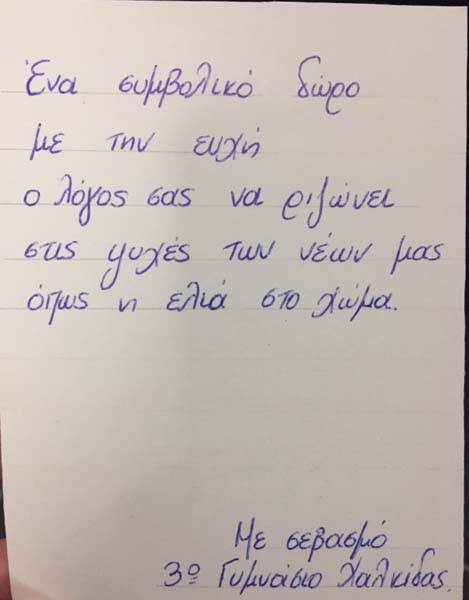 Ένα συμβολικό δώρο
με την ευχή
ο λόγος σας να ριζώνει
στις ψυχές των νέων μας
όπως η ελιά στο χώμα.
Με σεβασμό
3º Γυμνάσιο Χαλκίδας.